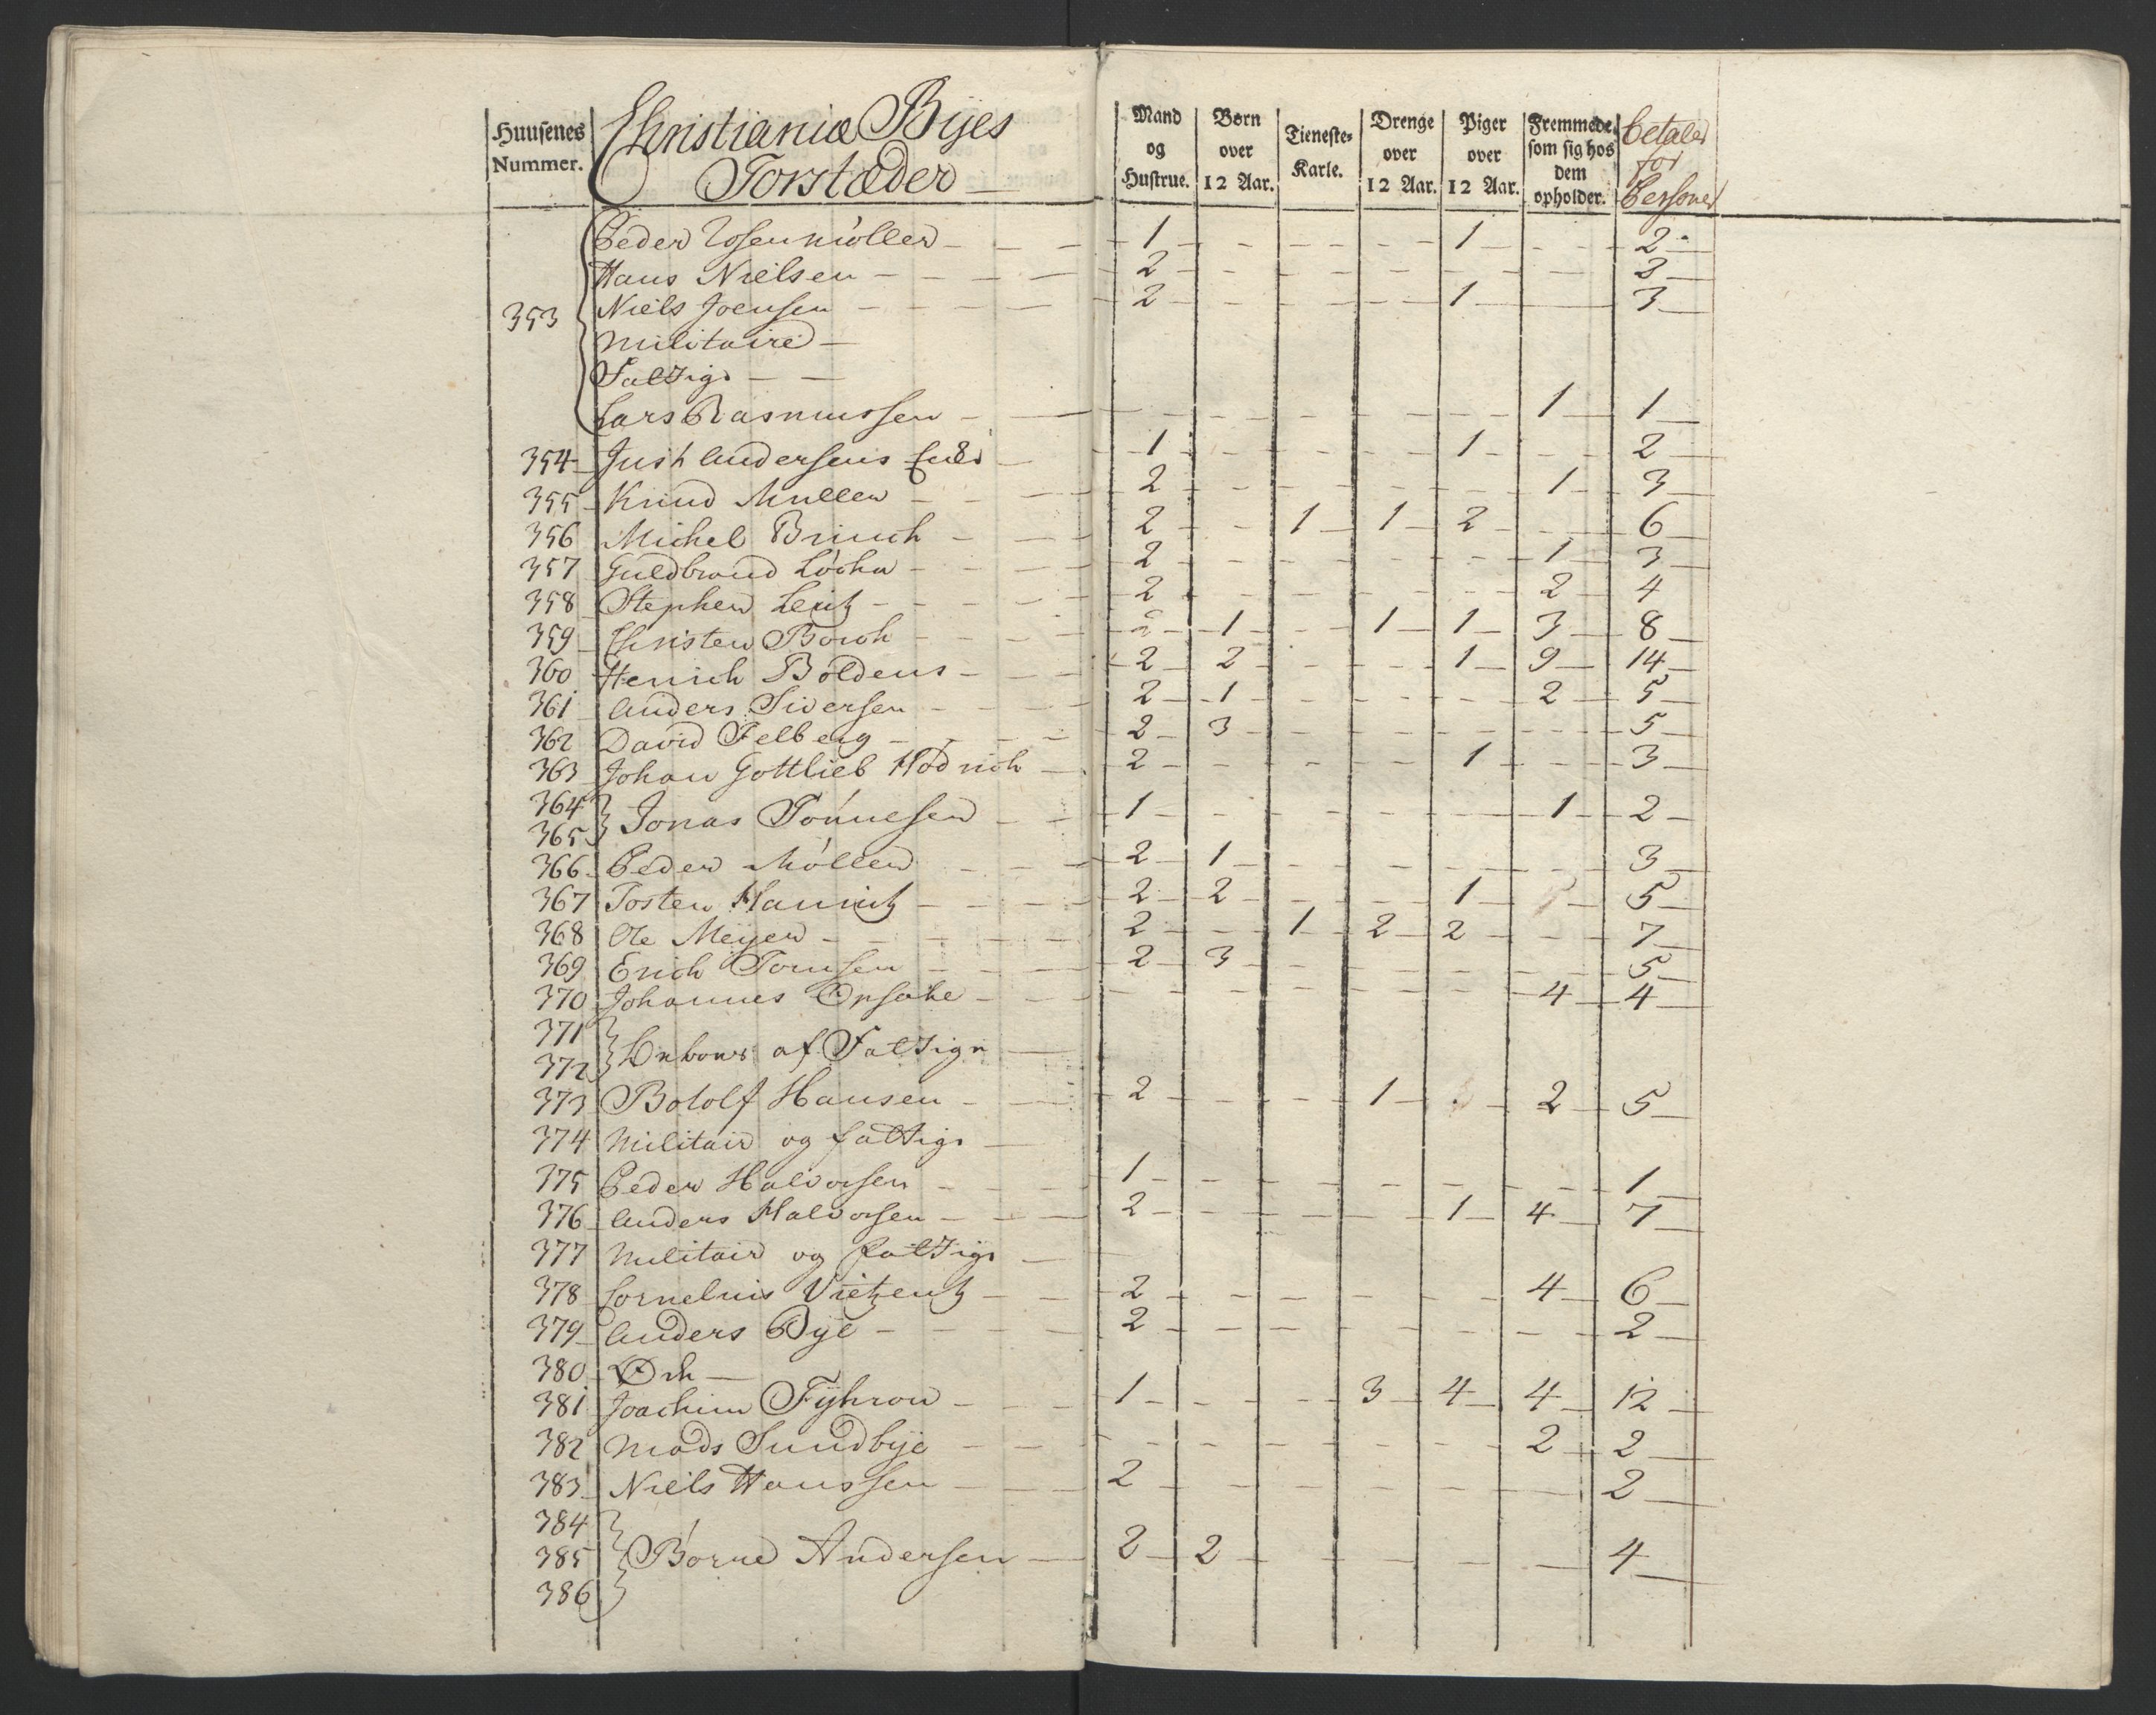 Huusenes Nummer. Christianiæ Byes Forstæder Mand og Hustrue. Børn over 12 Aar. Tieneste-Karle. Drenge over 12 Aar. Piger over 12 Aar. Fremmede, som sig hos dem opholder. Betaler for Persohner
353 Peder Rosenmöller - 1 - - - - 1 - - 2
Hans Nielsen - 2 - - - - - - 2
Niels Joensen - 2 - - - - 1 - 3
Militaire -
Fattige -
Lars Rasmussen - - - - - - 1 1
354 Just Andersens Enke - 1 - - - - 1 - - 2
355 Knud Muller - 2 - - - - - 1 3
356 Michel Brinch - 2 - - 1 1 2 - - 6
357 Guldbrand - 2 - - - - - 1 3
358 Stephen Leitz - 2 - - - - - 2 4
359 Christen Borch - 2 1 - - 1 1 3 8
360 Henrich Böldens - 2 2 - - - 1 9 14
361 Anders Siversen - 2 1 - - - - 2 5
362 David Felberg - 2 3 - - - - - 5
363 Johan Gottlieb Hödrich - 2 - - - - 1 - - 3
364
365 Jonas Tönnesen - 1 - - - - - 1 2
366 Peder Möller - 2 1 - - - - - 3
367 Tosten Hannitz - 2 2 - - - 1 5
368 Ole Meyer - 2 - - 1 2 2 - - 7
369 Erich Tomsen - 2 3 - - - - - 5
370 Johannes Opsahl - - - - - - 4 4
371
372 af Fattige
373 Botolf Hansen - 2 - - - 1 - 2 5
374 Militair og fattige -
375 Peder Halvorsen - 1 - - - - - - 1
376 Anders Halvorsen - 2 - - - - 1 4 7
377 Militair og fattige -
378 Cornelius Vietzentz - 2 - - - - - 4 6
379 Anders Bye - 2 - - - - - - 2
380 Öde -
381 Joachim Fyhron - 1 - - - 3 4 4 12
382 Mads Sundbye - - - - - - 2 2
383 Niels Hanssen - 2 - - - - - - 2
384
385 Börne Andersen - 2 2 - - - - - 4
386